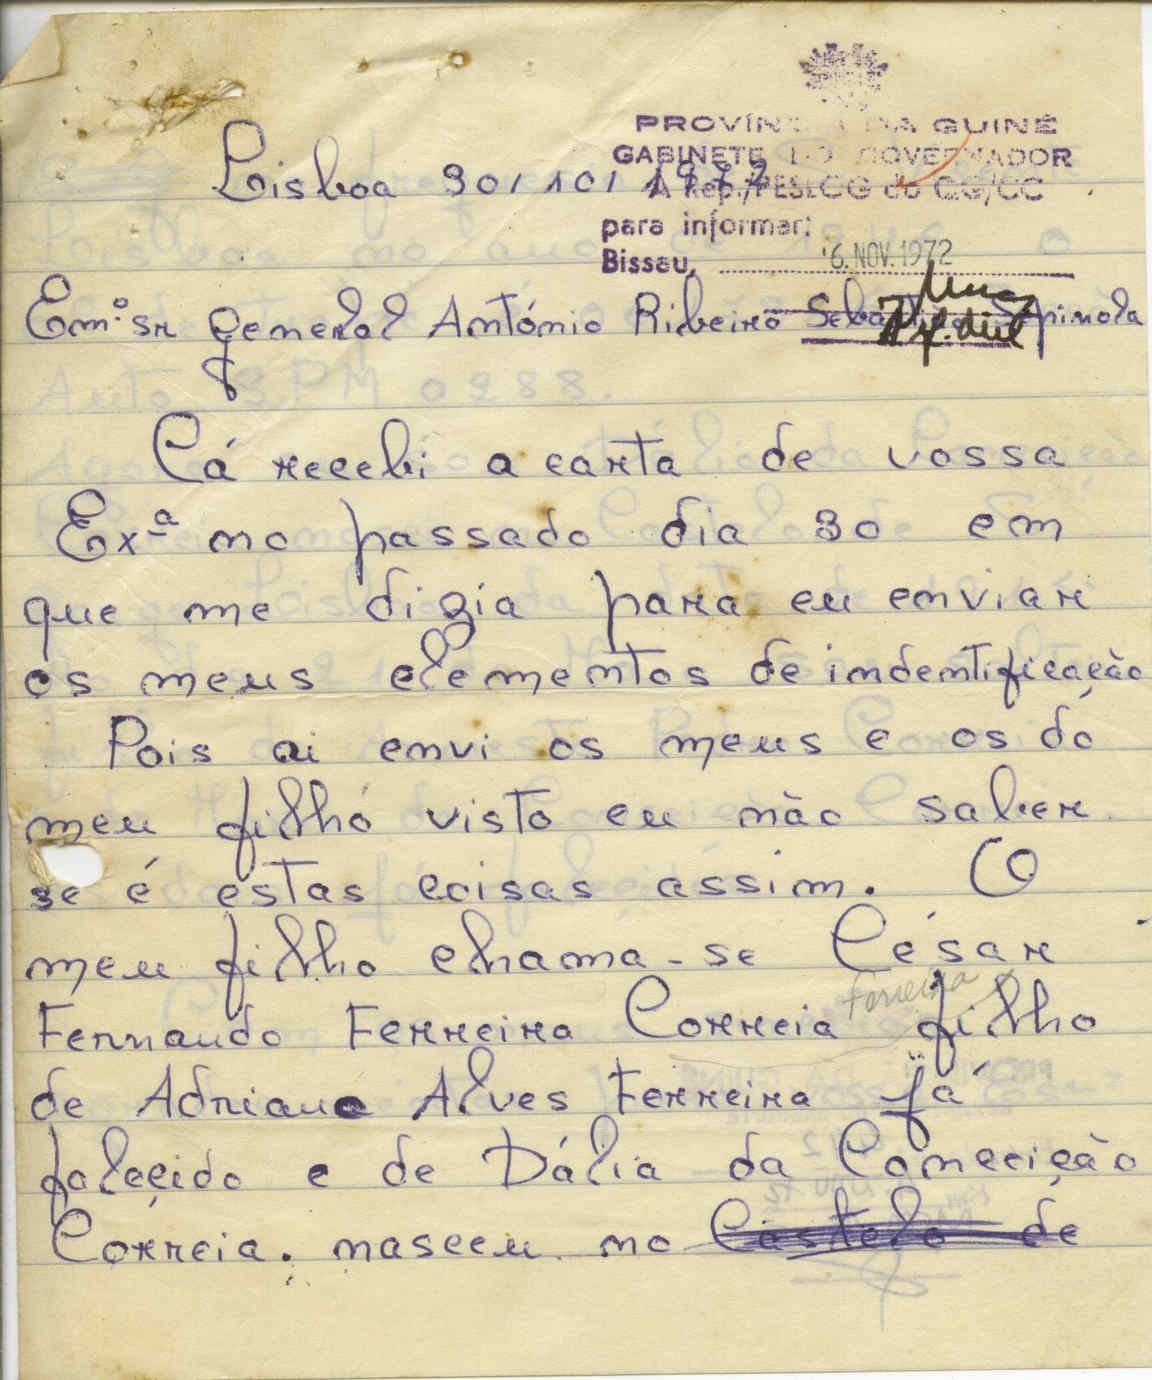 PROVÍNCIA DA GUINÉ
GABINETE DO GOVERNADOR
À Rep./PESLCG do QG/CC
para informar:
Bissau, 6. NOV. 1972
Lisboa 30/10/1972
Em.º Sr General António Ribeiro Spinola
Cá recebi a carta de vossa
Exª no passado dia 30 em
que me dizia para eu enviar
os meus elementos de indentificação
Pois ai envi os meus e os do
meu filho visto eu não saber
se é estas coisas assim. O
meu filho chama-se César
Ferreira
Fernando Ferreira Correia filho
de Adriano Alves Ferreira já
faleçido e de Dália da Conecição
Correia. nasceu no Castelo de